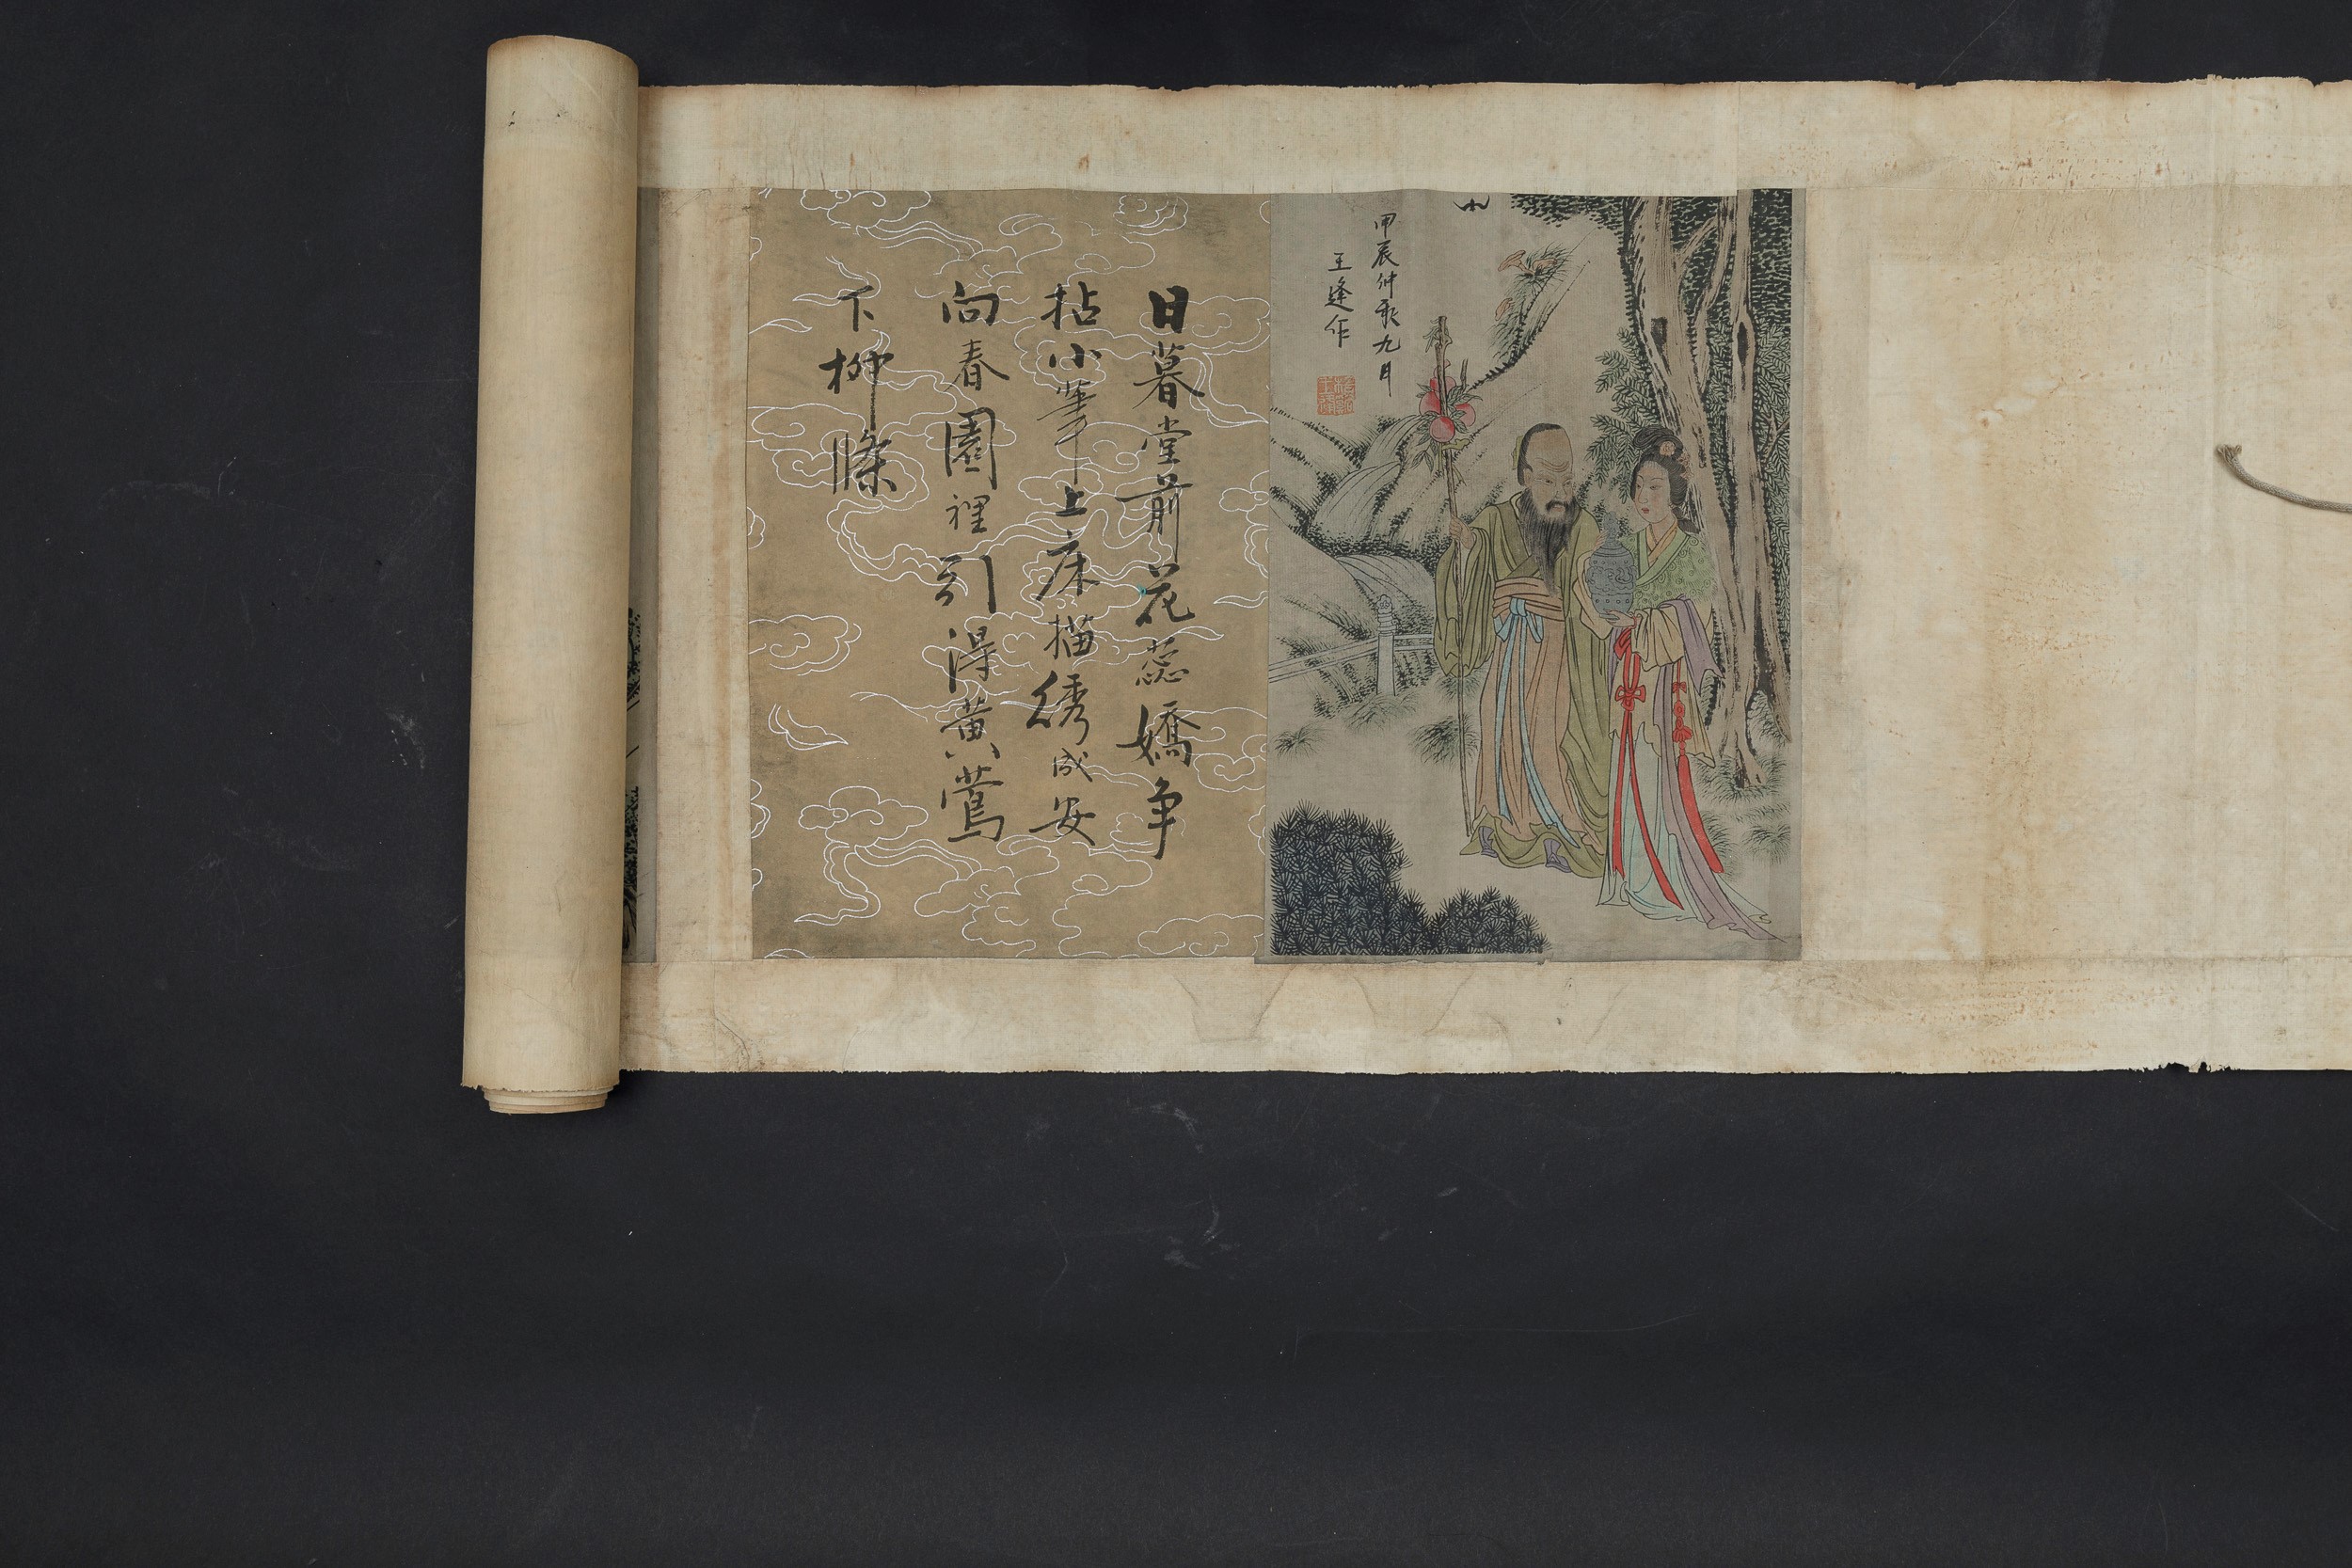 甲辰仲秋九月
王逢作
日暮堂前花蕊嬌争
拈小筆上床描綉成安
向春園裡引得黃鶯
下柳條